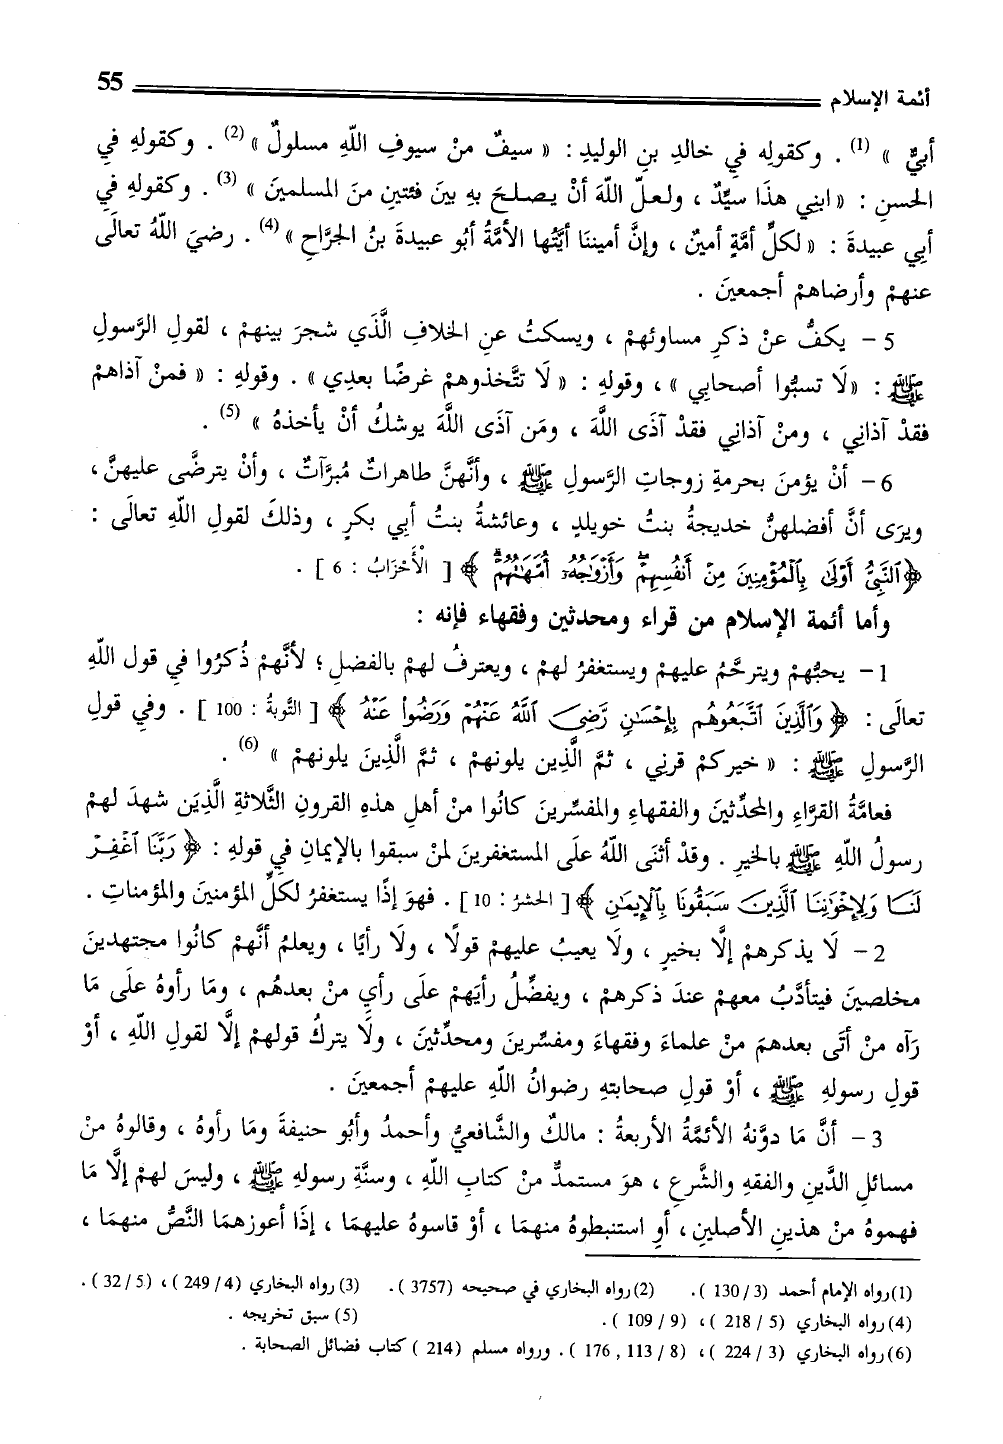 أئمة الإسلام 55
أبيٌّ » (1) . وكقولِه في خالدِ بنِ الوليدِ : « سيفٌ منْ سيوفِ اللّهِ مسلولٌ » (2) . وكقولهِ في
الحسنِ : « ابنِي هذَا سيِّدٌ ، ولعلّ اللّهَ أنْ يصلحَ بهِ بينَ فئتينِ منَ المسلمينَ » (3) . وكقولهِ في
أبِي عبيدةَ : « لكلِّ أمَّةٍ أمينٌ ، وإنَّ أميننَا أيَّتُها الأمَّةُ أبُو عبيدةَ بنُ الجرَّاحِ » (4) . رضيَ اللّهُ تعالَى
عنهمْ وأرضاهمْ أجمعينَ .
5 - يكفُّ عنْ ذكرِ مساوئهمْ ، ويسكتُ عنِ الخلافِ الَّذي شجرَ بينهمْ ، لقولِ الرَّسولِ
ﷺ : «لَا تسبُّوا أصحابِي » ، وقولهِ : « لَا تتَّخذوهمْ غرضًا بعدِي » . وقولهِ : « فمنْ آذاهمْ
فقدْ آذانِي ، ومنْ آذانِي فقدْ آذَى اللّهَ ، ومَن آذَى اللّهَ يوشكُ أنْ يأخذهُ » (5) .
6 - أنْ يؤمنَ بحرمةِ زوجاتِ الرَّسولِ ﷺ ، وأنَّهنَّ طاهراتٌ مُبرَّآتٌ ، وأنْ يترضَّى عليهنَّ ،
ويرَى أنَّ أفضلهنَّ خديجةُ بنتُ خويلدٍ ، وعائشةُ بنتُ أبِي بكرٍ ، وذلكَ لقولِ اللّهِ تعالَى :
﴿ ٱلنَّبِىُّ أَوْلَىٰ بِٱلْمُؤْمِنِينَ مِنْ أَنفُسِهِمْ ۖ وَأَزْوَٰجُهُۥٓ أُمَّهَٰتُهُمْ ۗ ﴾ [ الْأَحْزَابُ : 6 ] .
وأما أئمة الإسلام من قراء ومحدثين وفقهاء فإنه :
1 - يحبُّهمْ ويترحَّمُ عليهمْ ويستغفرُ لهمْ ، ويعترفُ لهمْ بالفضلِ ؛ لأنَّهمْ ذُكرُوا في قول اللّهِ
تعالَى : ﴿ وَٱلَّذِينَ ٱتَّبَعُوهُم بِإِحْسَٰنٍ رَّضِىَ ٱللَّهُ عَنْهُمْ وَرَضُوا۟ عَنْهُ ﴾ [ التَّوبةُ : 100 ] . وفي قولِ
الرَّسولِ ﷺ : « خيركمْ قرنِي ، ثمَّ الَّذِين يلونهمْ ، ثمَّ الَّذينَ يلونهمْ » (6) .
فعامَّةُ القرَّاءِ والمحدِّثينَ والفقهاءِ والمفسِّرينَ كانُوا منْ أهلِ هذهِ القرونِ الثَّلاثةِ الَّذِيَن شهدَ لهمْ
رسولُ اللّهِ ﷺ بالخيرِ . وقدْ أثنَى اللّهُ علَى المستغفرينَ لمنْ سبقوا بالإيمانِ في قولهِ : ﴿ رَبَّنَا ٱغْفِرْ
لَنَا وَلِإِخْوَٰنِنَا ٱلَّذِينَ سَبَقُونَا بِٱلْإِيمَٰنِ ﴾ [ الحشرُ : 10 ] . فهوَ إذًا يستغفرُ لكلِّ المؤمنينَ والمؤمناتِ .
2 - لَا يذكرهمْ إلَّا بخيرٍ ، ولَا يعيبُ عليهمْ قولًا ، ولَا رأيًا ، ويعلمُ أنَّهمْ كانُوا مجتهدينَ
مخلصينَ فيتأدَّبُ معهمْ عندَ ذكرهمْ ، ويفضِّلُ رأيَهمْ علَى رأيِ منْ بعدهُم ، ومَا رأوهُ علَى مَا
رَآه منْ أتَى بعدهمَ منْ علماءَ وفقهاءَ ومفسِّرينَ ومحدِّثينَ ، ولَا يتركُ قولهمْ إلَّا لقولِ اللّهِ ، أوْ
قولِ رسولهِ ﷺ ، أوْ قولِ صحابتهِ رضوانُ اللّهِ عليهمْ أجمعينَ .
3 - أنَّ مَا دوَّنهُ الأئمَّةُ الأربعةُ : مالكٌ والشَّافعيُّ وأحمدُ وأبُو حنيفةَ ومَا رأوهُ ، وقالوهُ منْ
مسائلِ الدِّينِ والفقهِ والشَّرعِ ، هوَ مستمدٌّ منْ كتابِ اللّهِ ، وسنَّةِ رسولهِ ﷺ ، وليسَ لهمْ إلَّا مَا
فهموهُ منْ هذينِ الأصلينِ ، أوِ استنبطوهُ منهمَا ، أوْ قاسوهُ عليهمَا ، إذَا أعوزهمَا النَّصُّ منهمَا ،
(1) رواه الإمام أحمد (3 / 130 ) . (2) رواه البخاري في صحيحه (3757 ) . (3) رواه البخاري (4 / 249 ) ، (5 / 32 ) .
(4) رواه البخاري (5 / 218 ) ، (9 / 109 ) . (5) سبق تخريجه .
(6) رواه البخاري (3 / 224 ) ، (8 / 113 , 176 ) . ورواه مسلم (214 ) كتاب فضائل الصحابة .